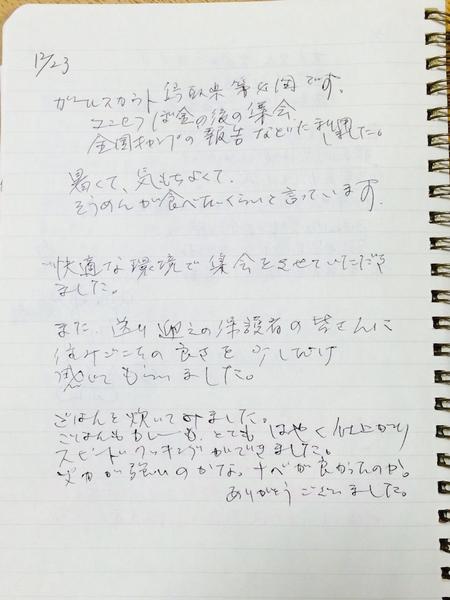 12/23
ガールスカウト鳥取県第4団です。
ユニセフ募金の後の集会
全国キャンプの報告などに利用した。
暑くて、気もちよくて、
そうめんが食べたいくらいと言っています。
快適な環境で集会をさせていただき
ました。
また、送り迎えの保護者の皆さんに
住みごこちの良さを少しだけ
感じてもらいました。
ごはんを炊いてみました。
ごはんもカレーも、とてもはやく仕上がり
スピードクッキングができました。
火力が強いのかな、ナベが良かったのか。
ありがとうございました。